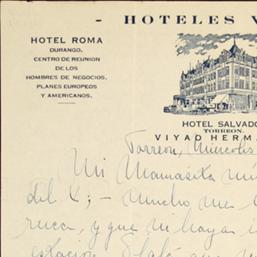 - HOTELES V
HOTEL ROMA
DURANGO.
CENTRO DE REUNION
DE LOS
HOMBRES DE NEGOCIOS.
PLANES EUROPEOS
Y AMERICANOS.
HOTEL SALVADO
TORREON.
VIYAD HERMA
Torreon, Miercoles
Mi Mamasita mi
del 6; - mucho me
y que ni hayas